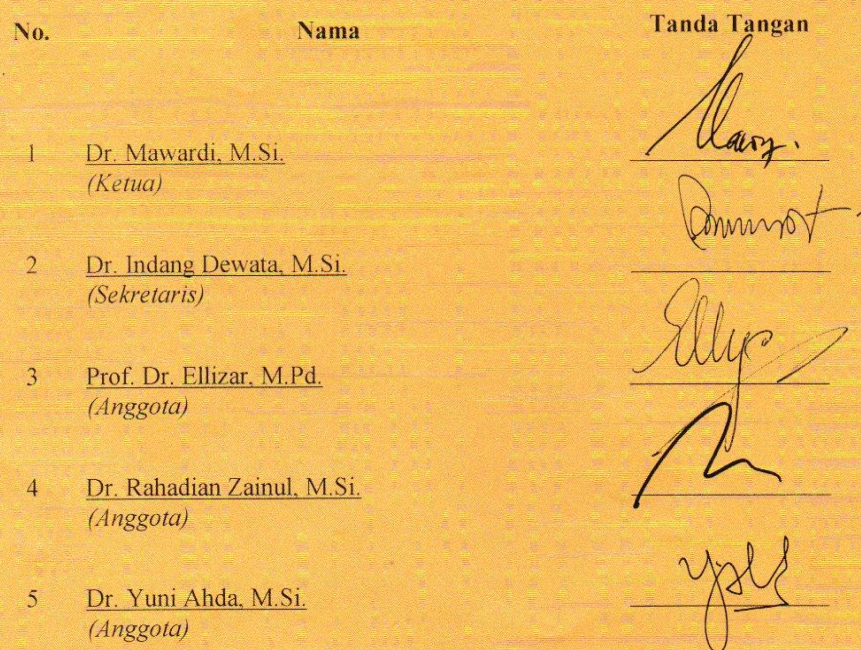 No. Nama Tanda Tangan
1 Dr. Mawardi, M.Si.
(Ketua)
2 Dr. Indang Dewata, M.Si.
(Sekretaris)
3 Prof. Dr. Ellizar, M.Pd.
(Anggota)
4 Dr. Rahadian Zainul, M.Si.
(Anggota)
5 Dr. Yuni Ahda, M.Si.
(Anggota)